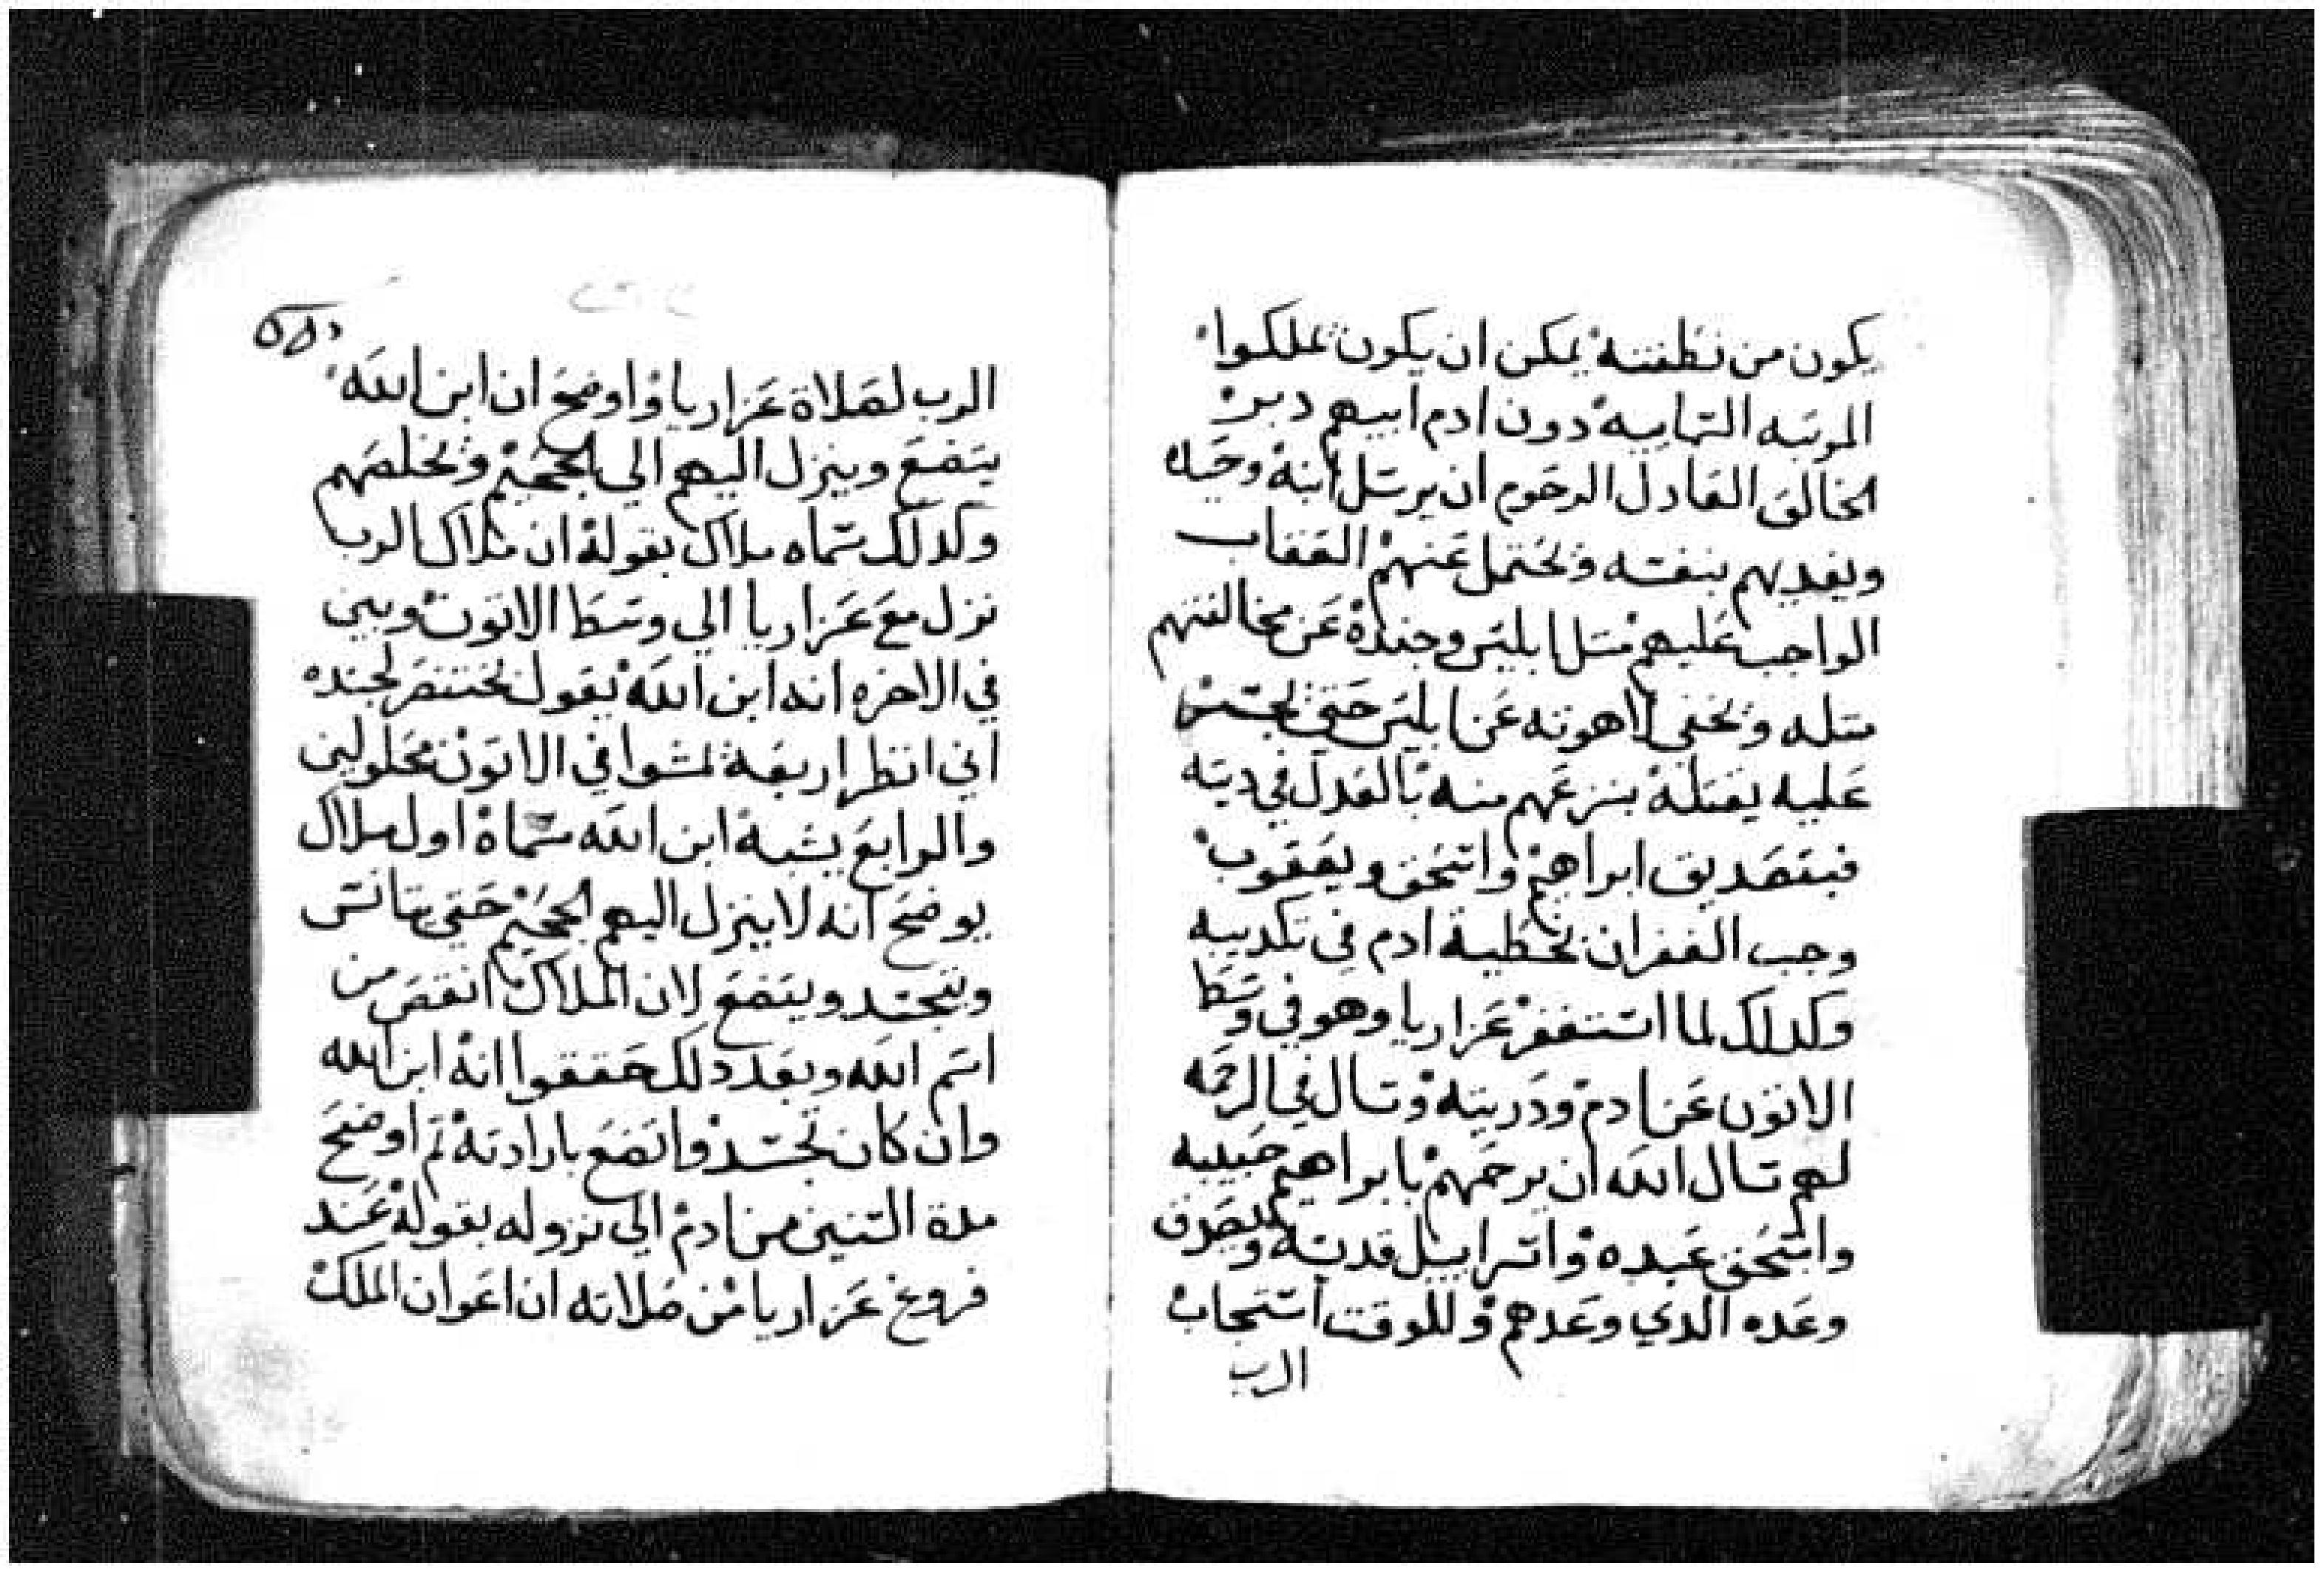 يكون من نطفته يمكن ان يكون تملكوا
المرتبه التمايية دون ادم ابيهم دبر
الخالق العادل الرحوم ان يرسل ابنه وحيده
ويفديهم بنفسه ويحتمل عنهم العقاب
الواجب عليهم متل ابليس وجنده عن مخالفتهم
متله ويخفي لاهوته عن ابليس حتي يجسر
عليه يقتله ينزعهم منه بالعدل في ديته
فبتصديق ابراهيم واسحق ويعقوب
وجب الغفران لخطية ادم في تكديبه
وكدلك لما استغفر عزاريا وهو في وسط
الاتون عن ادم ودريته وسال في الرحمه
لهم سال الله ان يرحمهم بابراهيم حبيبه
واسحق عبده واسراييل قديسه وبصدق
وعده الدي وعدهم وللوقت استجاب
الرب
الرب لصلاة عزاريا واوضح ان ابن الله
يتضع وينزل اليهم الي الجحيم ويخلصهم
وكدلك سماه ملاك بقوله ان ملاك الرب
نزل مع عزاريا الي وسط الاتون وبين
في الاخره انه ابن الله يقول بختنصر لجنده
اني انظر اربعة تمشوا في الاتون محلولين
والرابع يشبه ابن الله سماه اول ملاك
يوضح انه لا ينزل اليهم الجحيم حتي يتانس
ويتجسد ويتضع لان الملاك انقص من
اسم الله وبعد دلك حققوا انه ابن الله
وان كان تجسد واتضع بارادته تم اوضح
مدة السنين من ادم الي نزوله بقوله عند
فروغ عزاريا من صلاته ان اعوان الملك